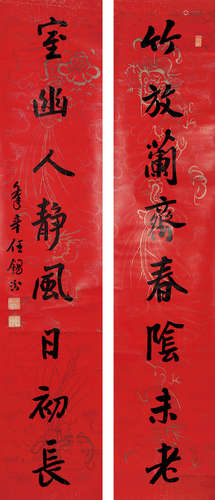 竹放蘭齋春陰未老
室幽人静風日初長
逢辛任錫汾